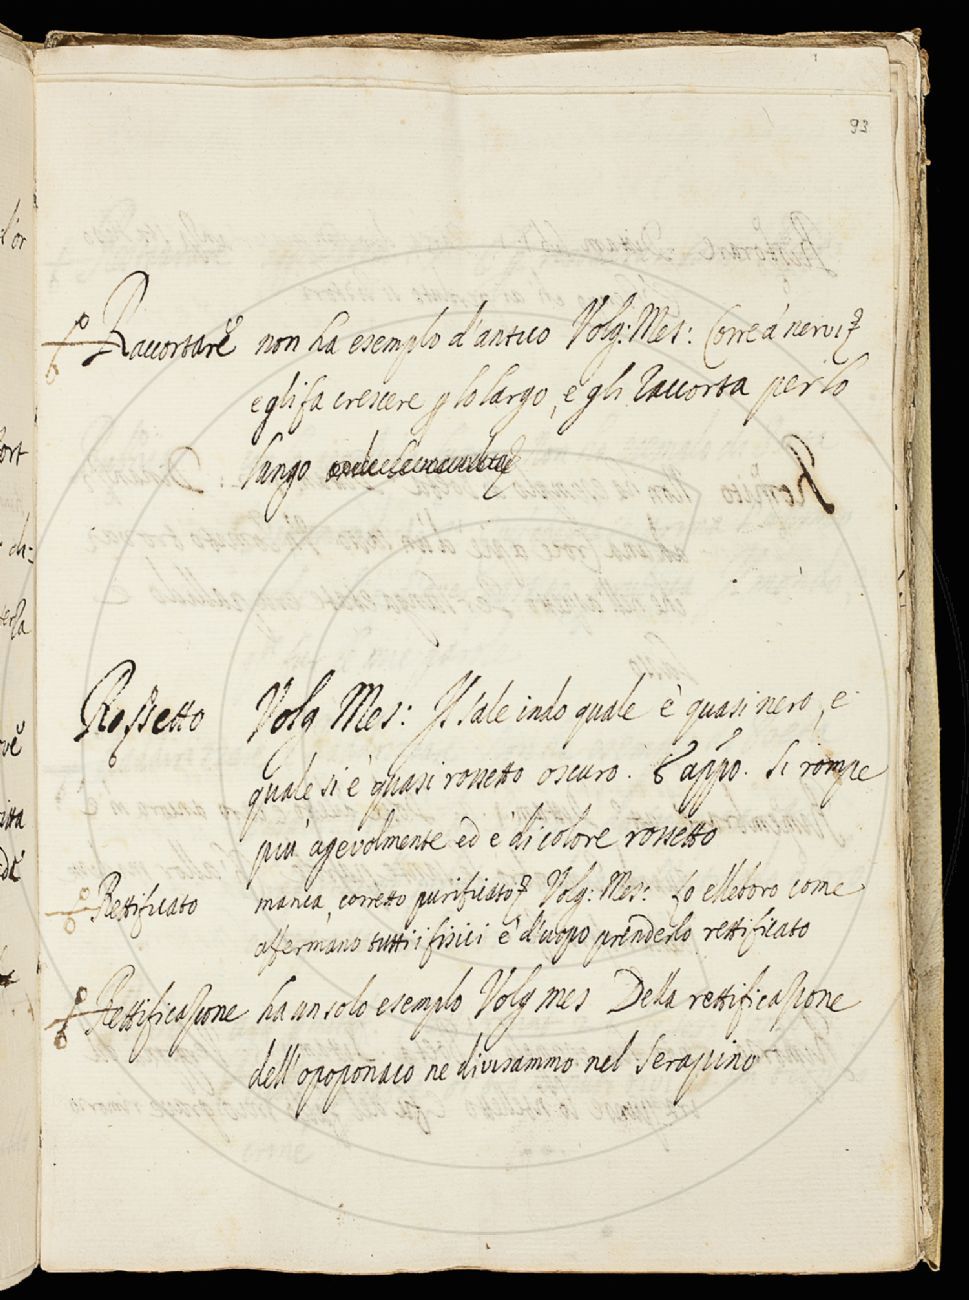 93
Raccortare non ha esemplo d'antico Volg: Mes: Corre a' nervi
e gli fa crescere p lo largo, e gli raccorta per lo
lungo
Rossetto Volg Mes: Il sale indo quale è quasi nero, e
quale si è quasi rossetto oscuro. E appo. Si rompe
più agevolmente ed è di colore rossetto
Rettificato manca, corretto purificato Volg: Mes: Lo elleboro come
affermano tutti i fisici è d'uopo prenderlo rettificato
Rettificazione ha un solo esemplo Volg mes Della rettificazione
dell'opoponaco ne divisammo nel Serapino